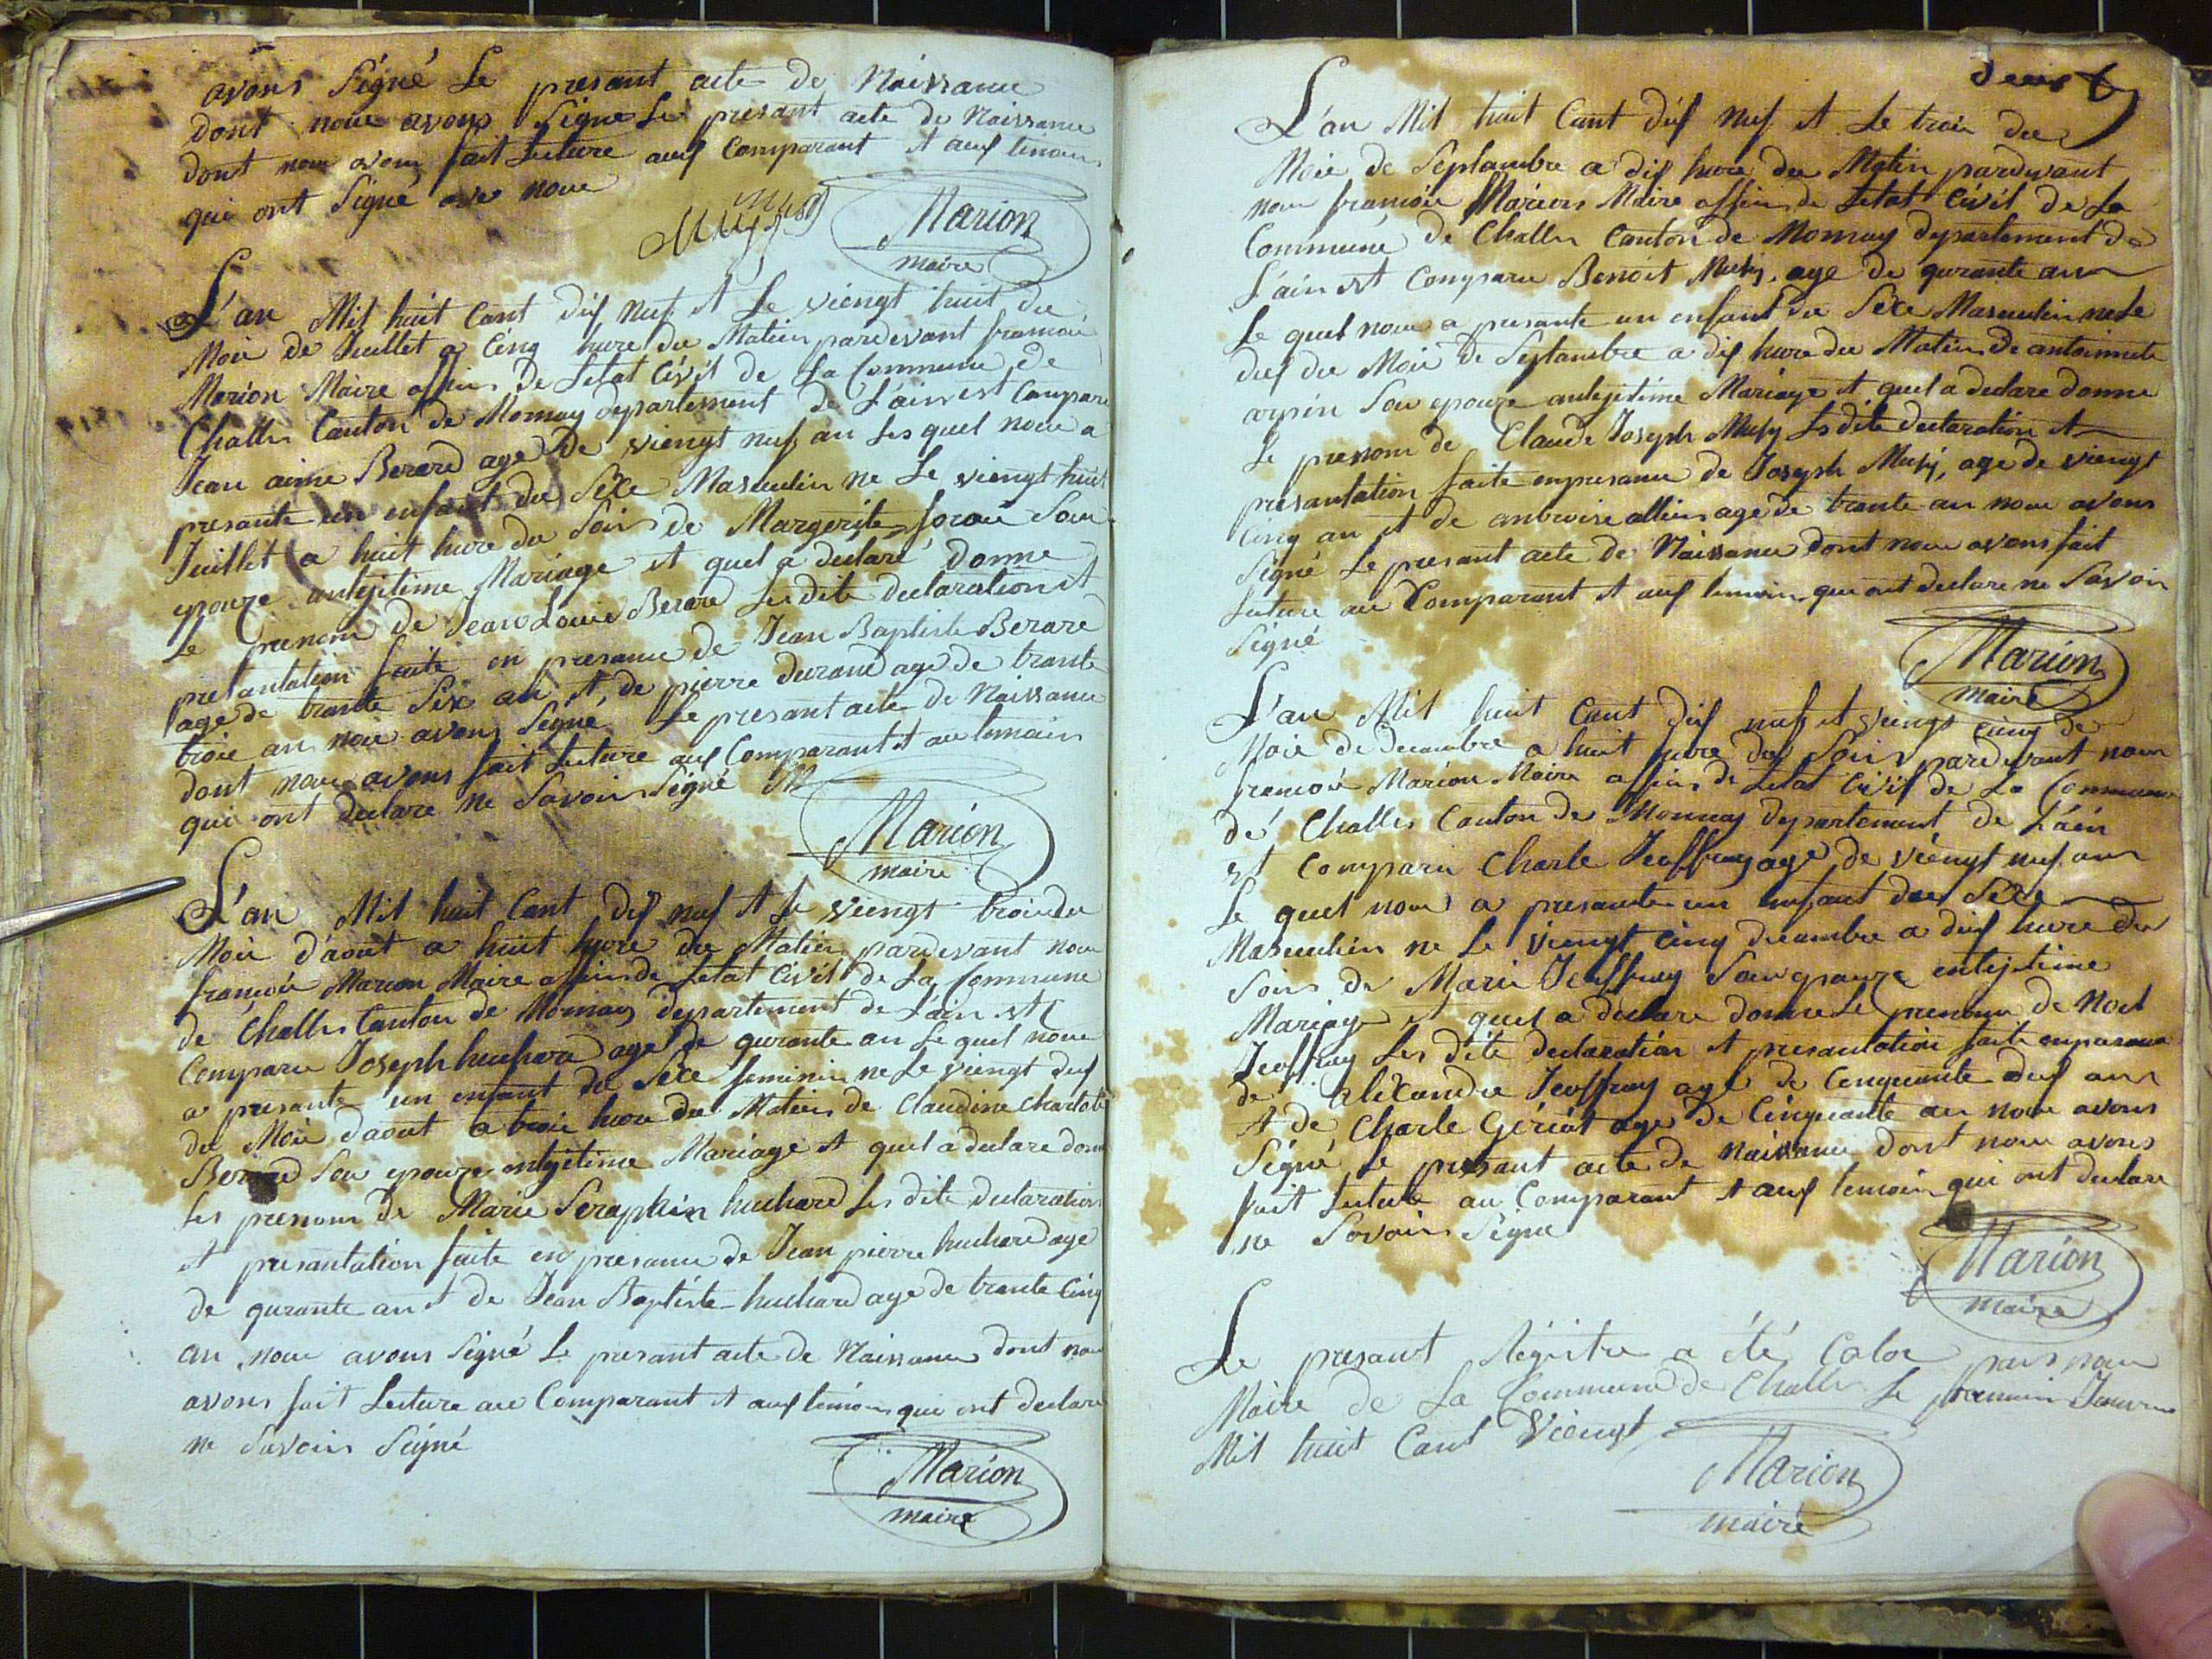 avons Signé Le presant acte de Naissance
dont nous avons Signe Le presant acte de Naissance
dont nous avons fait Lecture auf Comparant et auf temoins
qui ont Signé ave nous
Marion
maire
L'an Mil huit Cant dif Neuf et Le viengt huit du
Moie de Juillet a Cinq hure du Matien pardevant francoie
Marion Maire officies de Letat Civil de La Commune de
Challes Canton de Momay departement de L'ain est Compare
Jean aime Berard age de viengt neuf an Les quel nous a
presante un enfant du Séxe Masculin ne Le viengt huit
Juillet a huit hure du Soir de Margerite Sou
epouze antejitime Mariage et quel a declaré donne
Le prenom de Jean Louie Berard Les dite declaration et
presantation faite en presance de Jean Baptiste Berare
age de trante Six an et de pierre durand age de trante
troie an nous avons Signé Le presant acte de Naissance
dont nous avons fait Lecture auf Comparant et au temoin
qui ont declare ne Savoir Signé
Marion
maire
L'an Mil huit Cant dif neuf et Le viengt troie du
Moie d'aout a huit hure du Matien pardevant nous
francoie Marion Maire officies de Letat Civil de La Commune
de Challes Canton de Momay departement de L'ain est
Comparu Joseph huchard age de qurante an Le quel nous
a presante un enfant du Séxe feminin ne Le viengt duf
du Moie d'aout a troie hure du Matien de Claudine Charlote
Berard Sou epouze antejitime Mariage et quel a declare donne
Les prenom de Marie Seraphin huchard Les dite declaration
et presantation faite en presance de Jean pierre huchard age
de qurante an et de Jean Baptiste huchard age de trante Cinq
an nous avons Signé Le presant acte de Naissance dont nous
avons fait Lecture au Comparant et auf temoin qui ont declare
ne Savoir Signé
Marion
maire
L'an Mil huit Cant dif Neuf et Le troie du
Moie de Septambre a dif hure du Matin pardevant
nous francoie Marion Maire officies de Letat Civil de La
Commune de Challes Canton de Momay departement de
L'ain est Comparu Benoit Musy age de qurante an
Le quel nous a presante un enfant du Séxe Masculin ne Le
duf du Moie de Septambre a dif hure du Matin de antoinnete
arpin Sou epouze antejitime Mariage et quel a declare donne
Le prenom de Claude Joseph Musy Les dite declaration et
presantation faite en presance de Joseph Musy, age de viengt
Cinq an et de anbroise age de trante an nous avons
Signé Le presant acte de Naissance dont nous avons fait
Lecture au Comparant et auf temoin qui ont declare ne Savoir
Signé
Marion
maire
L'an Mil huit Cant dif neuf et viengt Cinq de
Moie de decambre a huit hure du Soir pardevant nous
francoie Marion Maire officies de Letat Civil de La Commune
de Challes Canton de Momay departement de L'ain
est Comparu Charle Jeoffray age de viengt neuf an
Le quel nous a presante un enfant du Séxe
Masculin ne Le viengt Cinq decambre a dif hure du
Soir de Marie Jeoffray Sou epouze entejitime
Mariage et quel a declare donne Le prenom de Noel
Jeoffray Les dite declaration et presantation faite enpresance
de Alexandre Jeoffray age de Cenquante duf an
et de Charle Gériat age de Cinquante an nous avons
Signé Le presant acte de Naissance dont nous avons
fait Lecture au Comparant et auf temoin qui ont declare
ne Savoir Signe
Marion
maire
Le presant Régistre a été Calos pars nous
Maire de La Commune de Challes Le premier
Mil huit Cant Viengt
Marion
maire